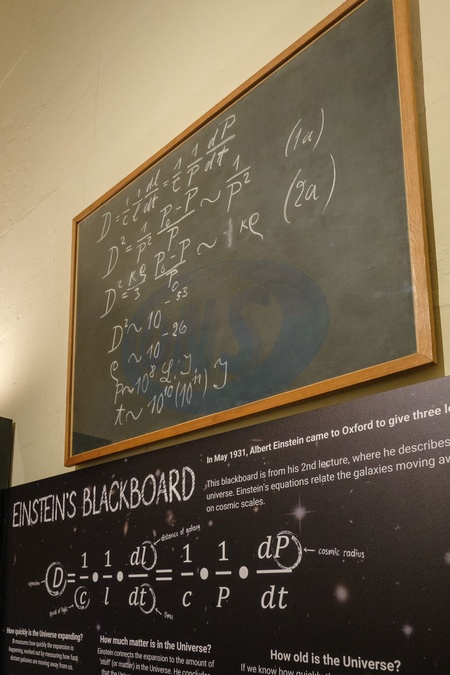 D = 1/c 1/l dl/dt = 1/c 1/P dP/dt (1a)
D² = 1/P² (P₀-P)/P ~ 1/P² (2a)
D² = κρ/3 (P₀-P)/P₀ ~ κρ
D² ~ 10⁻⁵³
ρ ~ 10⁻²⁶
P ~ 10⁸ L.J.
t ~ 10¹⁰(10¹¹) J
EINSTEIN'S BLACKBOARD
In May 1931, Albert Einstein came to Oxford to give three
This blackboard is from his 2nd lecture, where he describes
universe. Einstein's equations relate the galaxies moving
on cosmic scales.
distance of galaxy
D = 1/c • 1/l • dl/dt = 1/c • 1/P • dP/dt
expansion
cosmic radius
speed of light
time
How quickly is the Universe expanding?
D measures how quickly the expansion is
happening, worked out by measuring how fast
distant galaxies are moving away from us.
How much matter is in the Universe?
Einstein connects the expansion to the amount of
'stuff' (or matter) in the Universe. He
How old is the Universe?
If we know how quickly